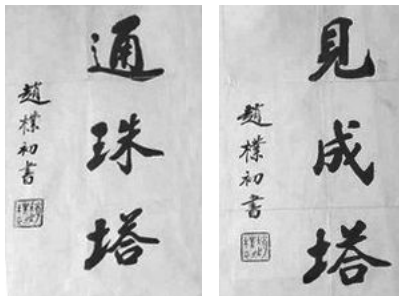 通珠塔
趙樸初書
見成塔
趙樸初書